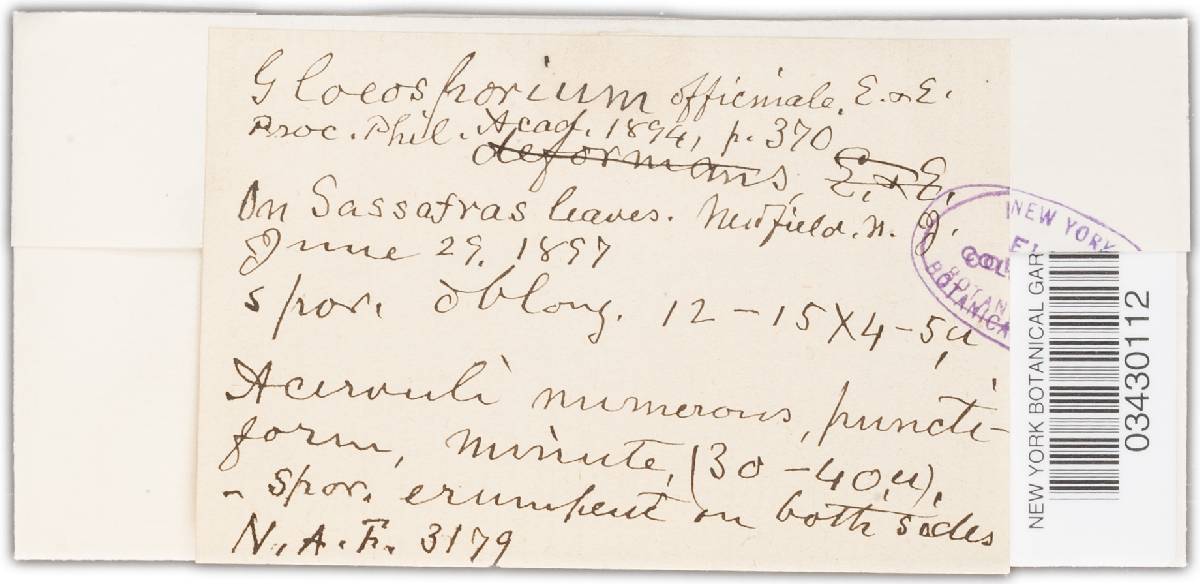 Gloeosporium officinale, E. & E.
Proc. Phil. Acad. 1894, p. 370
deformans, E. & E.
On Sassafras leaves. Newfield. N. J.
June 29. 1897
spor. oblong. 12-15X4-5µ
Acervuli numerous, puncti-
form, minute, (30-40µ),
- spor. erumpent on both sides
N. A. F. 3179
NEW YORK
COL
BOTAN
BOTANICA
NEW YORK BOTANICAL GAR
03430112